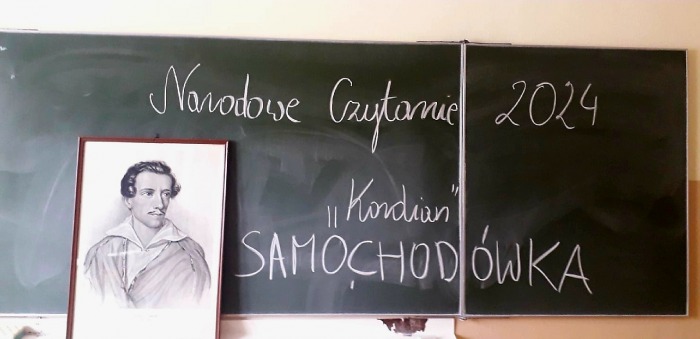 Narodowe Czytanie 2024
„Kordian”
SAMOCHODÓWKA